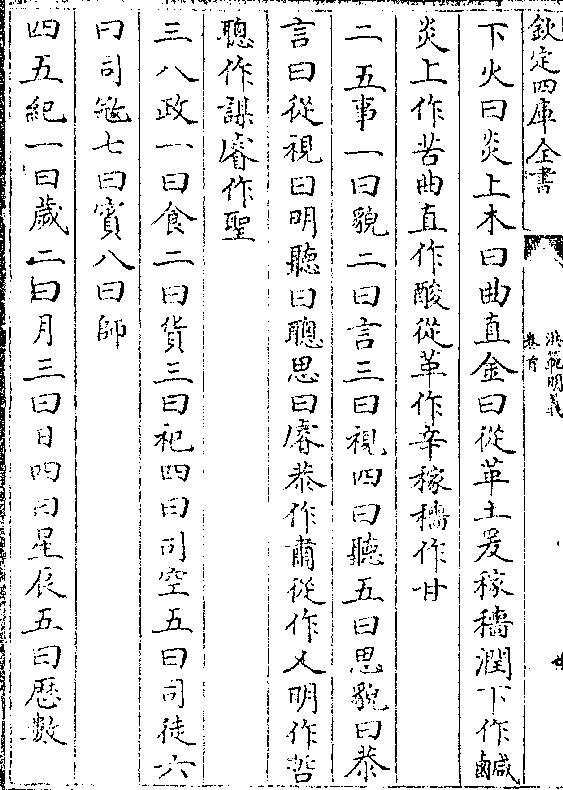 欽定四庫全書
洪範明義
卷首
下火曰炎上木曰曲直金曰從革土爰稼穡潤下作鹹
炎上作苦曲直作酸從革作辛稼穡作甘
二五事一曰貌二曰言三曰視四曰聽五曰思貌曰恭
言曰從視曰明聽曰聰思曰睿恭作肅從作乂明作哲
聰作謀睿作聖
三八政一曰食二曰貨三曰祀四曰司空五曰司徒六
曰司冦七曰賓八曰師
四五紀一曰歲二曰月三曰日四曰星辰五曰歷數